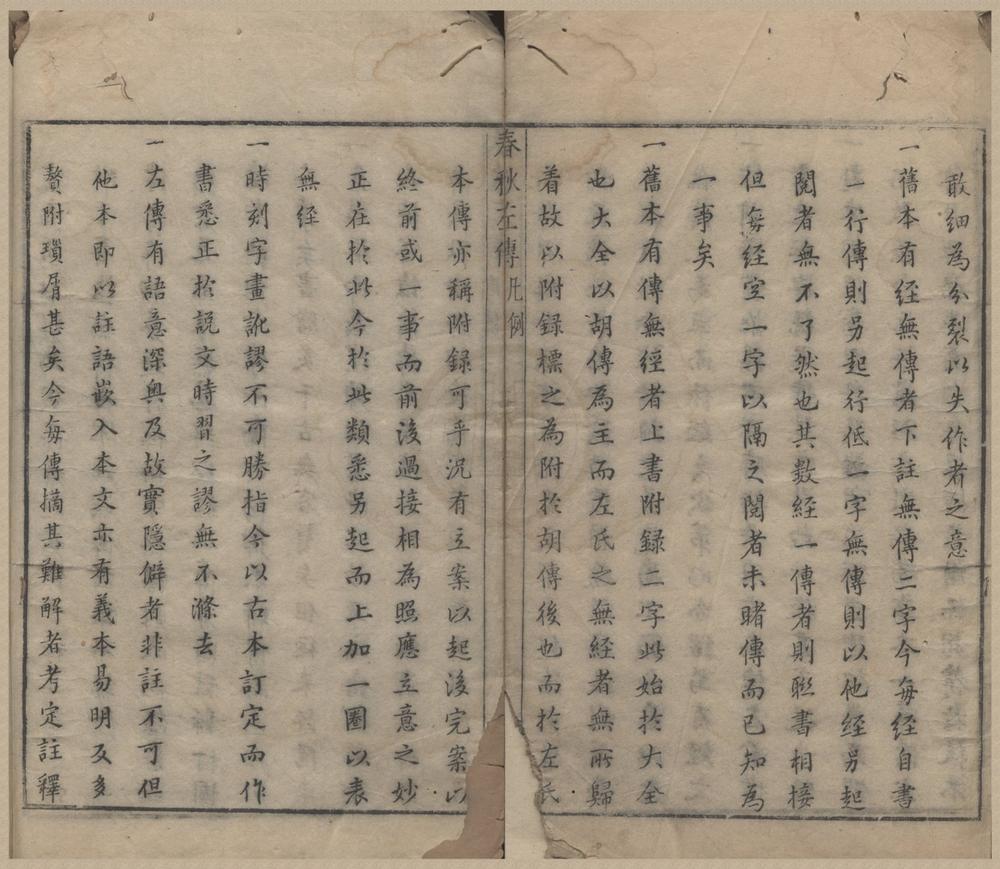 敢細為分裂以失作者之意
一舊本有經無傳者下註無傳二字今每經自書
一行傳則另起行低一字無傳則以他經另起
閱者無不了然也其數經一傳者則聯書相接
但每經空一字以隔之閱者未睹傳而已知為
一事矣
一舊本有傳無經者上書附録二字此始於大全
也大全以胡傳為主而左氏之無經者無所歸
着故以附録標之為附於胡傳後也而於左氏
春秋左傳凡例
本傳亦稱附録可乎況有立案以起後完案以
終前或一事而前後過接相為照應立意之妙
正在於此今於此類悉另起而上加一圈以表
無經
一時刻字畫訛謬不可勝指今以古本訂定而作
書悉正於説文時習之謬無不滌去
一左傳有語意深奥及故實隱僻者非註不可但
他本即以註語嵌入本文亦有義本易明反多
贅附瑣屑甚矣今每傳摘其難解者考定註釋